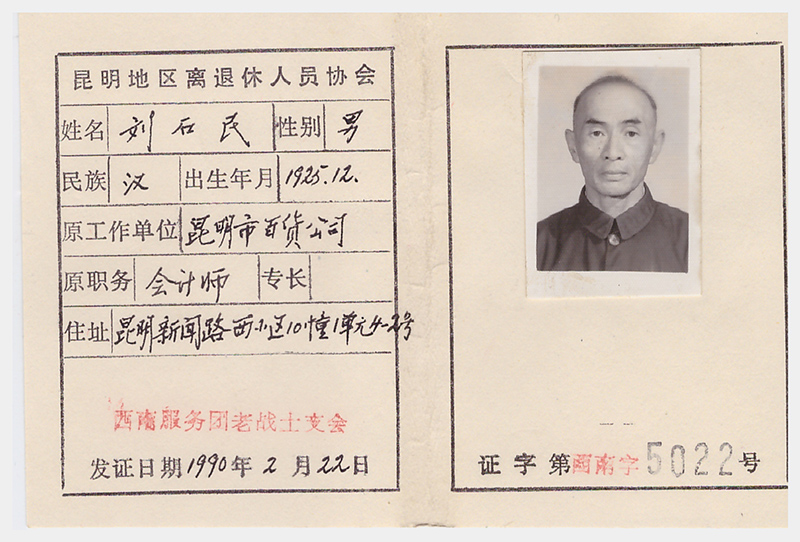 昆明地区离退休人员协会
姓名 刘石民 性别 男
民族 汉 出生年月 1925.12.
原工作单位 昆明市百货公司
原职务 会计师 专长
住址 昆明新闻路西小区10幢1单元4-2号
西南服务团老战士支会
发证日期 1990年2月22日
证字第西南字5022号